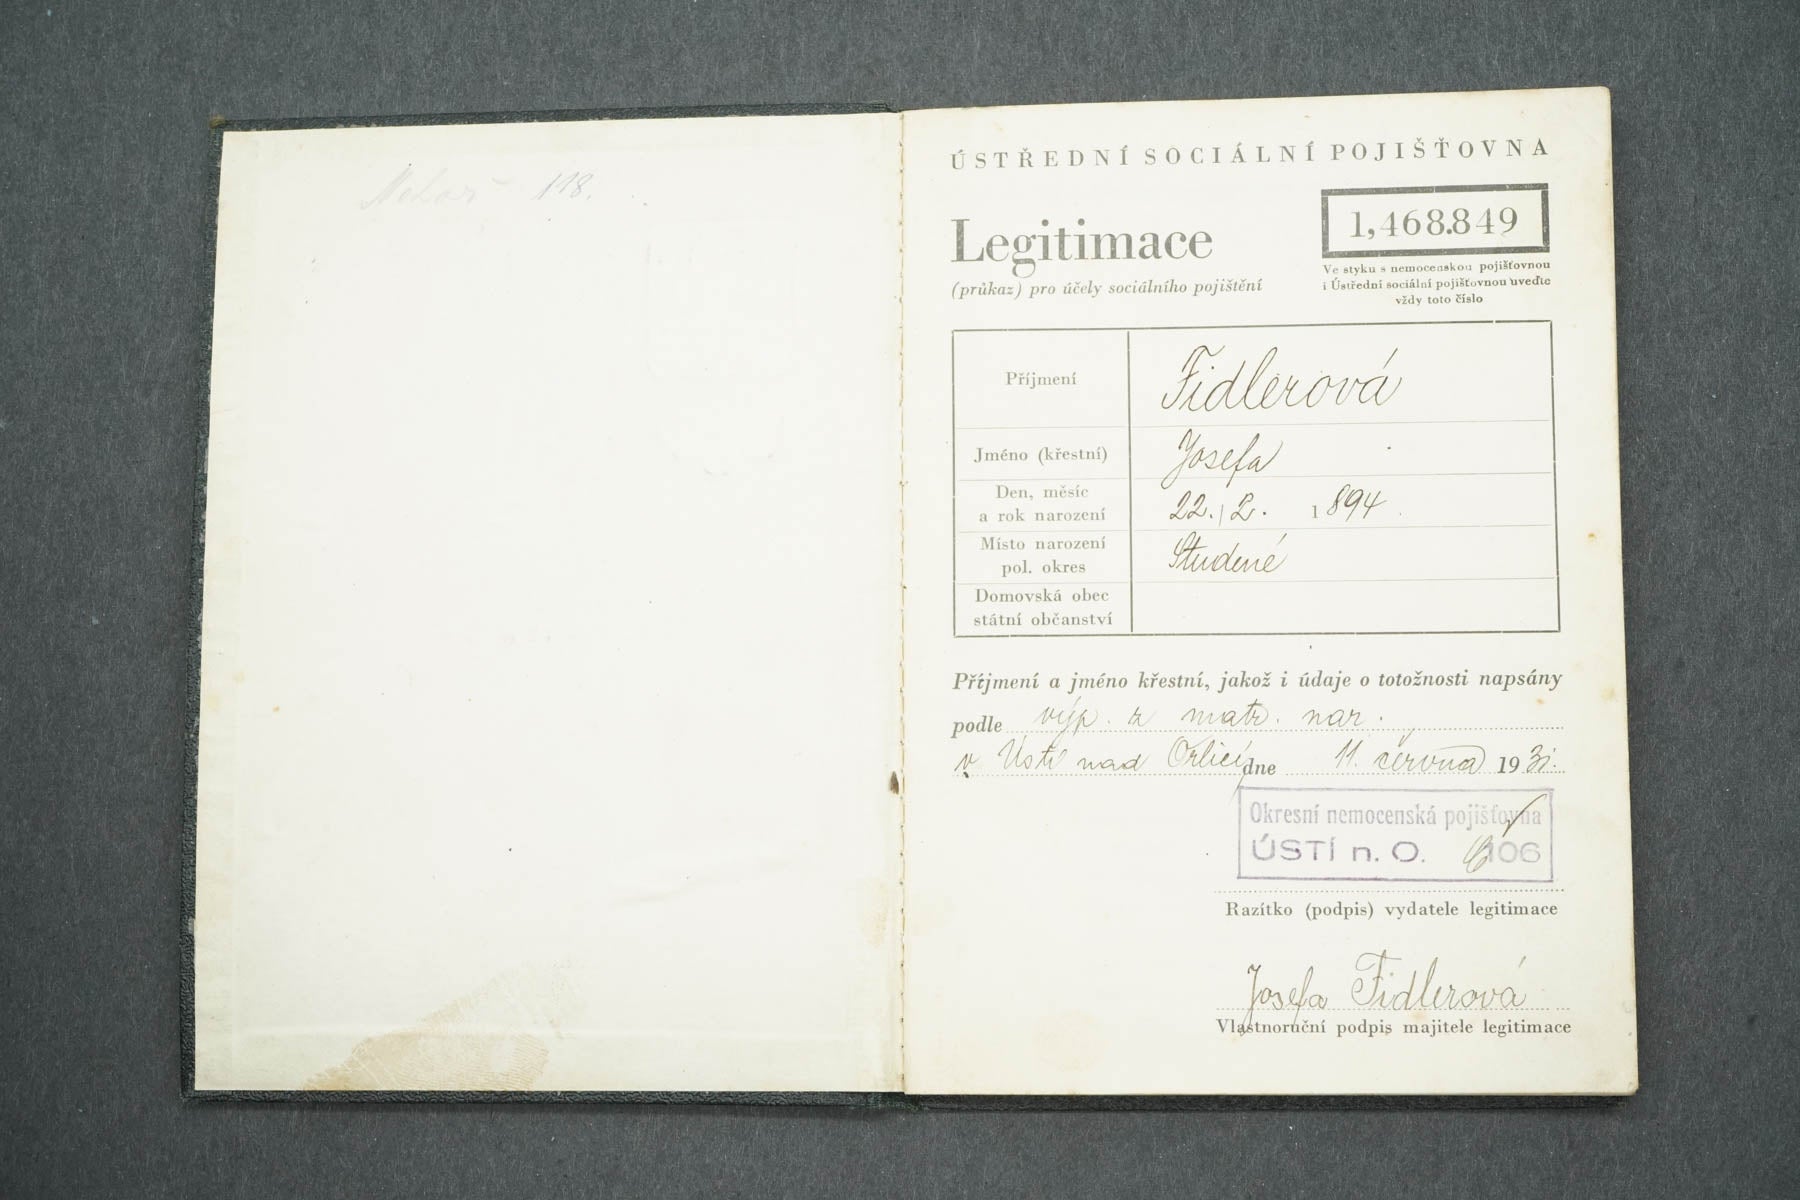 118.
ÚSTŘEDNÍ SOCIÁLNÍ POJIŠŤOVNA
Legitimace
(průkaz) pro účely sociálního pojištění
1,468.849
Ve styku s nemocenskou pojišťovnou
i Ústřední sociální pojišťovnou uveďte
vždy toto číslo
Příjmení Fidlerová
Jméno (křestní) Josefa
Den, měsíc
a rok narození 22./2. 1894
Místo narození
pol. okres Studené
Domovská obec
státní občanství
Příjmení a jméno křestní, jakož i údaje o totožnosti napsány
podle výp. z matr. nar.
v Ústí nad Orlicí dne 11. června 1931.
Okresní nemocenská pojišťovna
ÚSTÍ n. O. 106
Razítko (podpis) vydatele legitimace
Josefa Fidlerová
Vlastnoruční podpis majitele legitimace